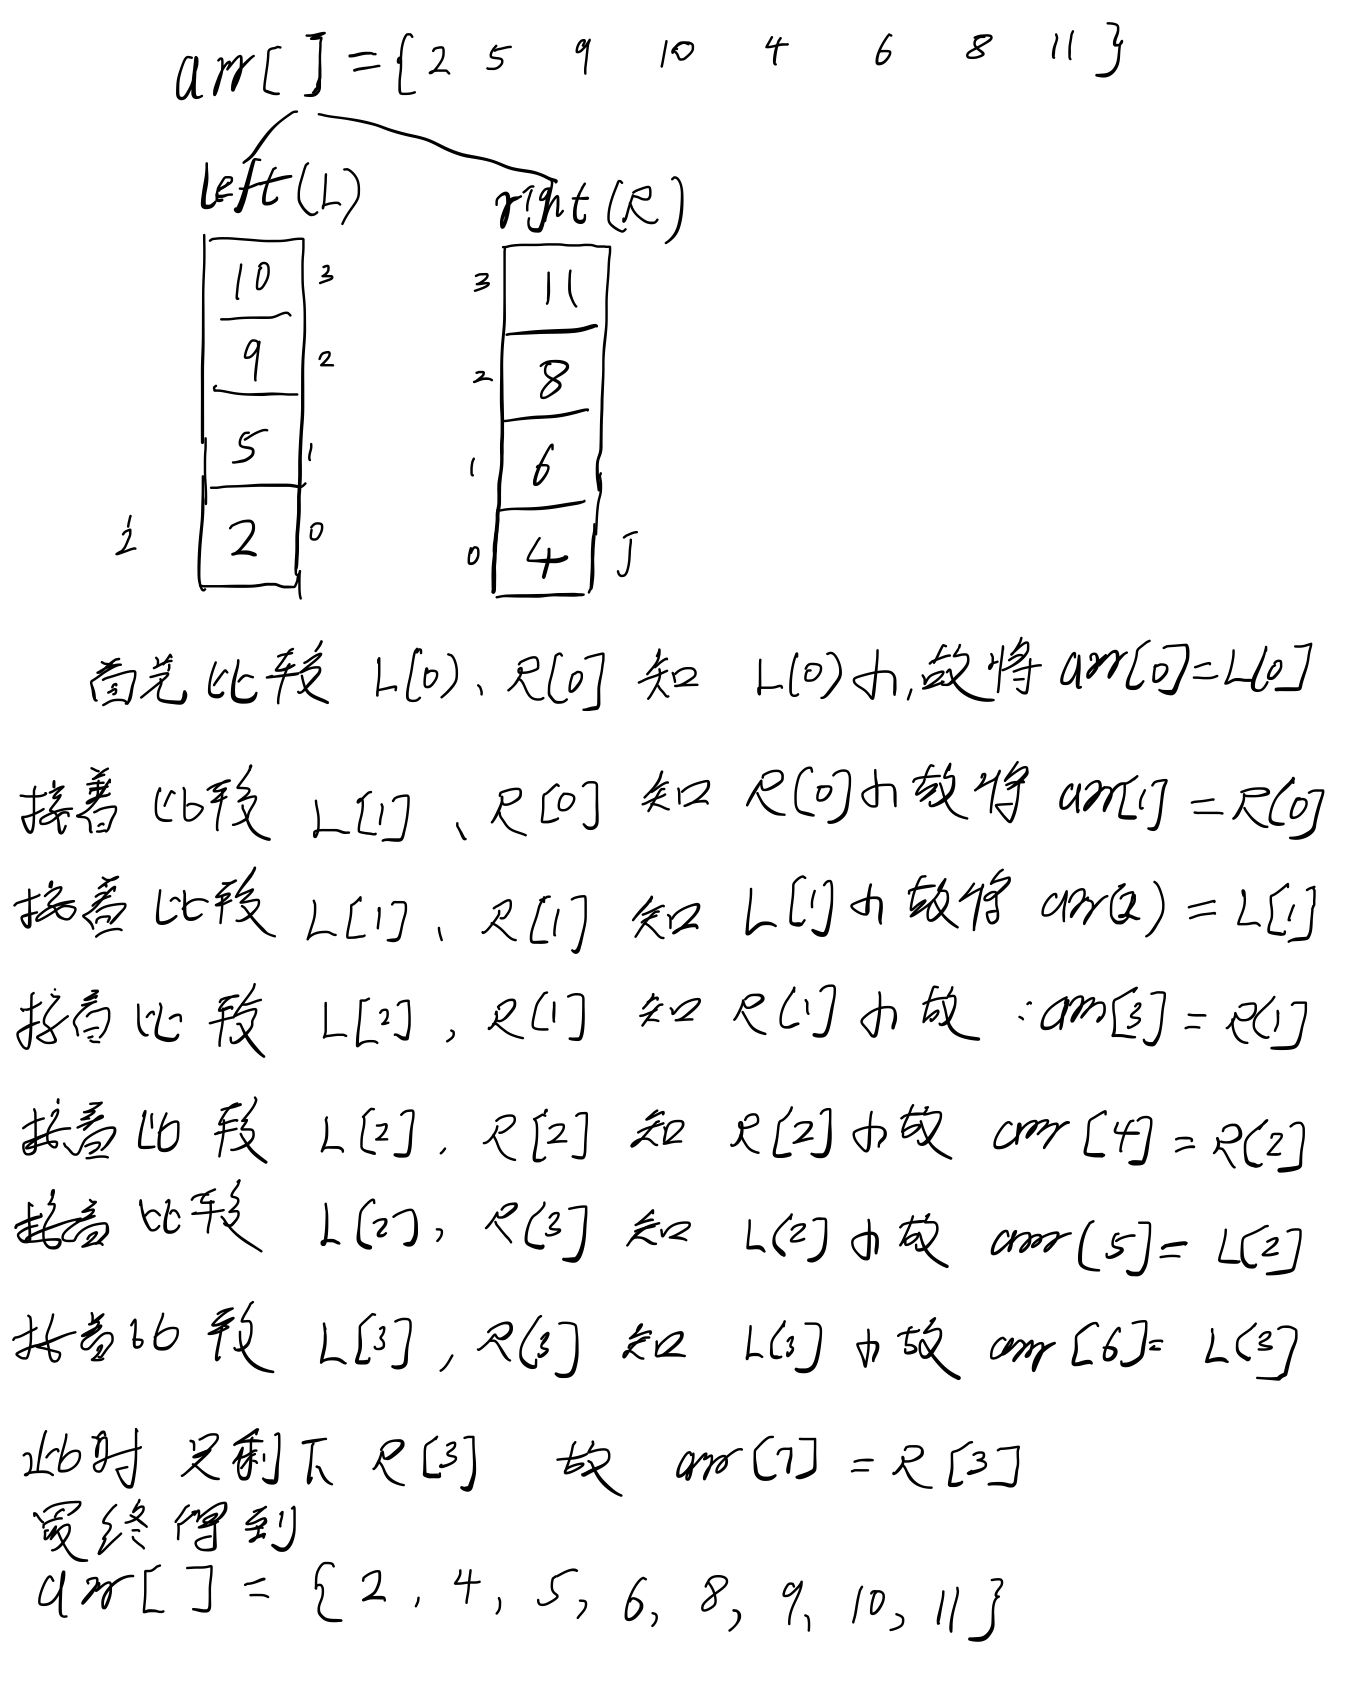 arr[ ]={2 5 9 10 4 6 8 11}
left(L)
right(R)
10 3
3 11
9 2
2 8
5 1
1 6
i 2 0
0 4 J
首先比较 L[0)、R[0] 知 L(0)小,故将 arr[0]=L[0]
接着比较 L[1]、R[0] 知 R[0]小故将 arr[1]=R(0]
接着比较 L[1]、R[1] 知 L[1]小故将 arr(2)=L[1]
接着比较 L[2],R(1] 知 R(1]小故:arr[3]=R(1]
接着比较 L[2],R[2] 知 R[2]小故 arr[4]=R(2]
接着比较 L(2],R(3] 知 L(2]小故 arr(5]=L[2]
接着比较 L[3],R(3] 知 L(3]小故 arr[6]=L(3]
此时只剩下 R[3] 故 arr[7]=R[3]
最终得到
arr[ ]={2,4,5,6,8,9,10,11}